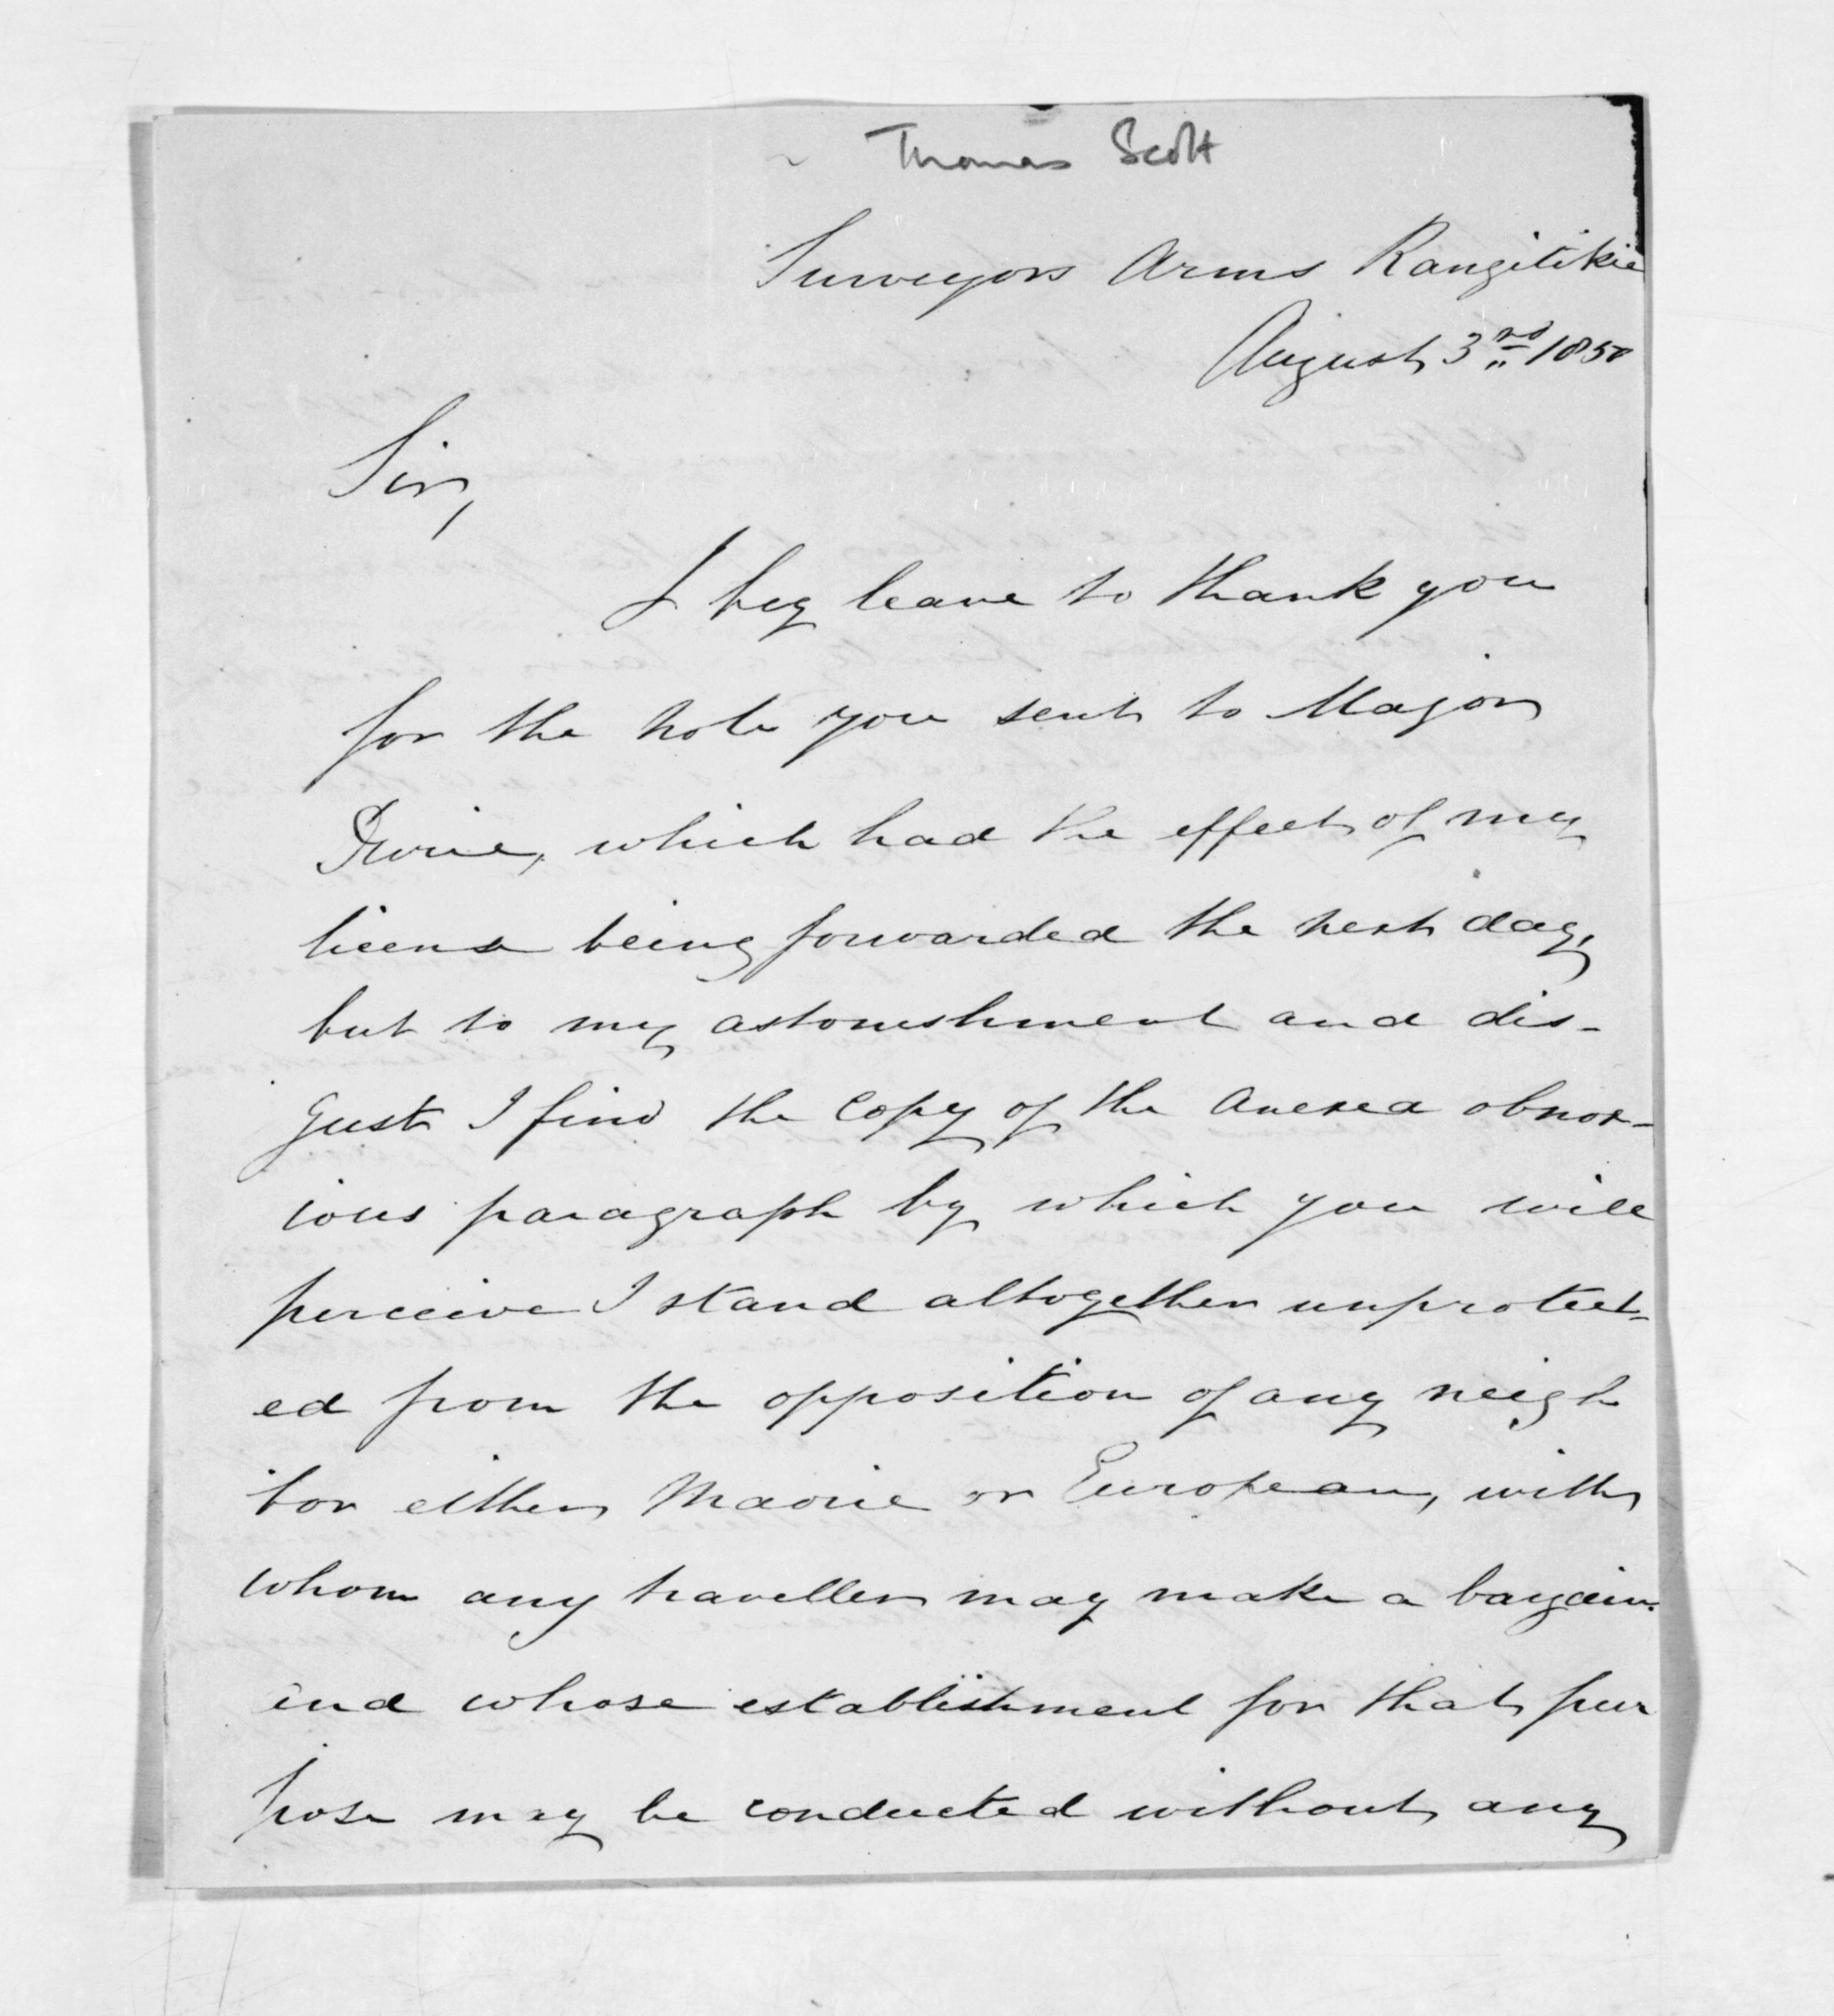 Thomas Scott
Surveyors Arms Rangitikie
August 3rd 1850
Sir,
I beg leave to thank you
for the note you sent to Major
Durie, which had the effect of my
license being forwarded the next day,
but to my astonishment and dis-
gust I find the copy of the anexed obnox-
ious paragraph by which you will
perceive I stand altogether unprotect-
ed from the opposition of any neigh
bor either Maorie or European, with
whom any traveller may make a bargain
and whose establishment for that pur
pose may be conducted without any